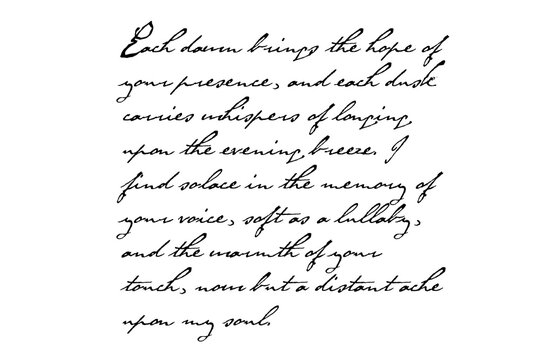 Each dawn brings the hope of
your presence, and each dusk
carries whispers of longing
upon the evening breeze. I
find solace in the memory of
your voice, soft as a lullaby,
and the warmth of your
touch, now but a distant ache
upon my soul.